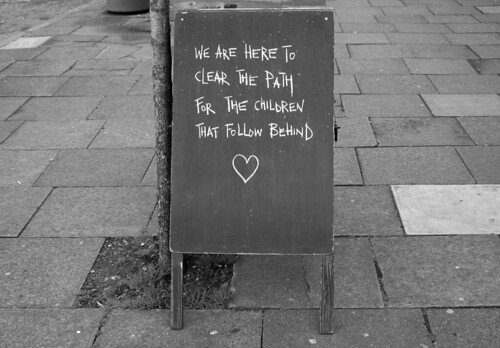 WE ARE HERE TO
CLEAR THE PATH
FOR THE CHILDREN
THAT FOLLOW BEHIND